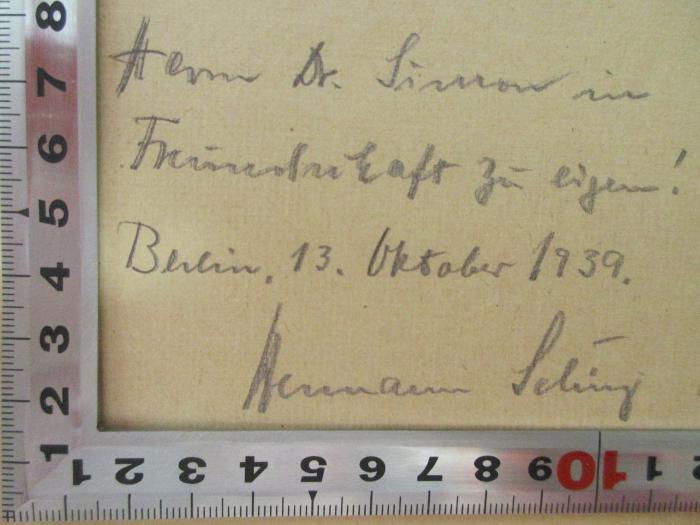 Herrn Dr. Simon in
Freundschaft zu eigen!
Berlin, 13. Oktober 1939.
Hermann
8 7 6 5 4 3 2 1
1 2 3 4 5 6 7 8 9 10 11